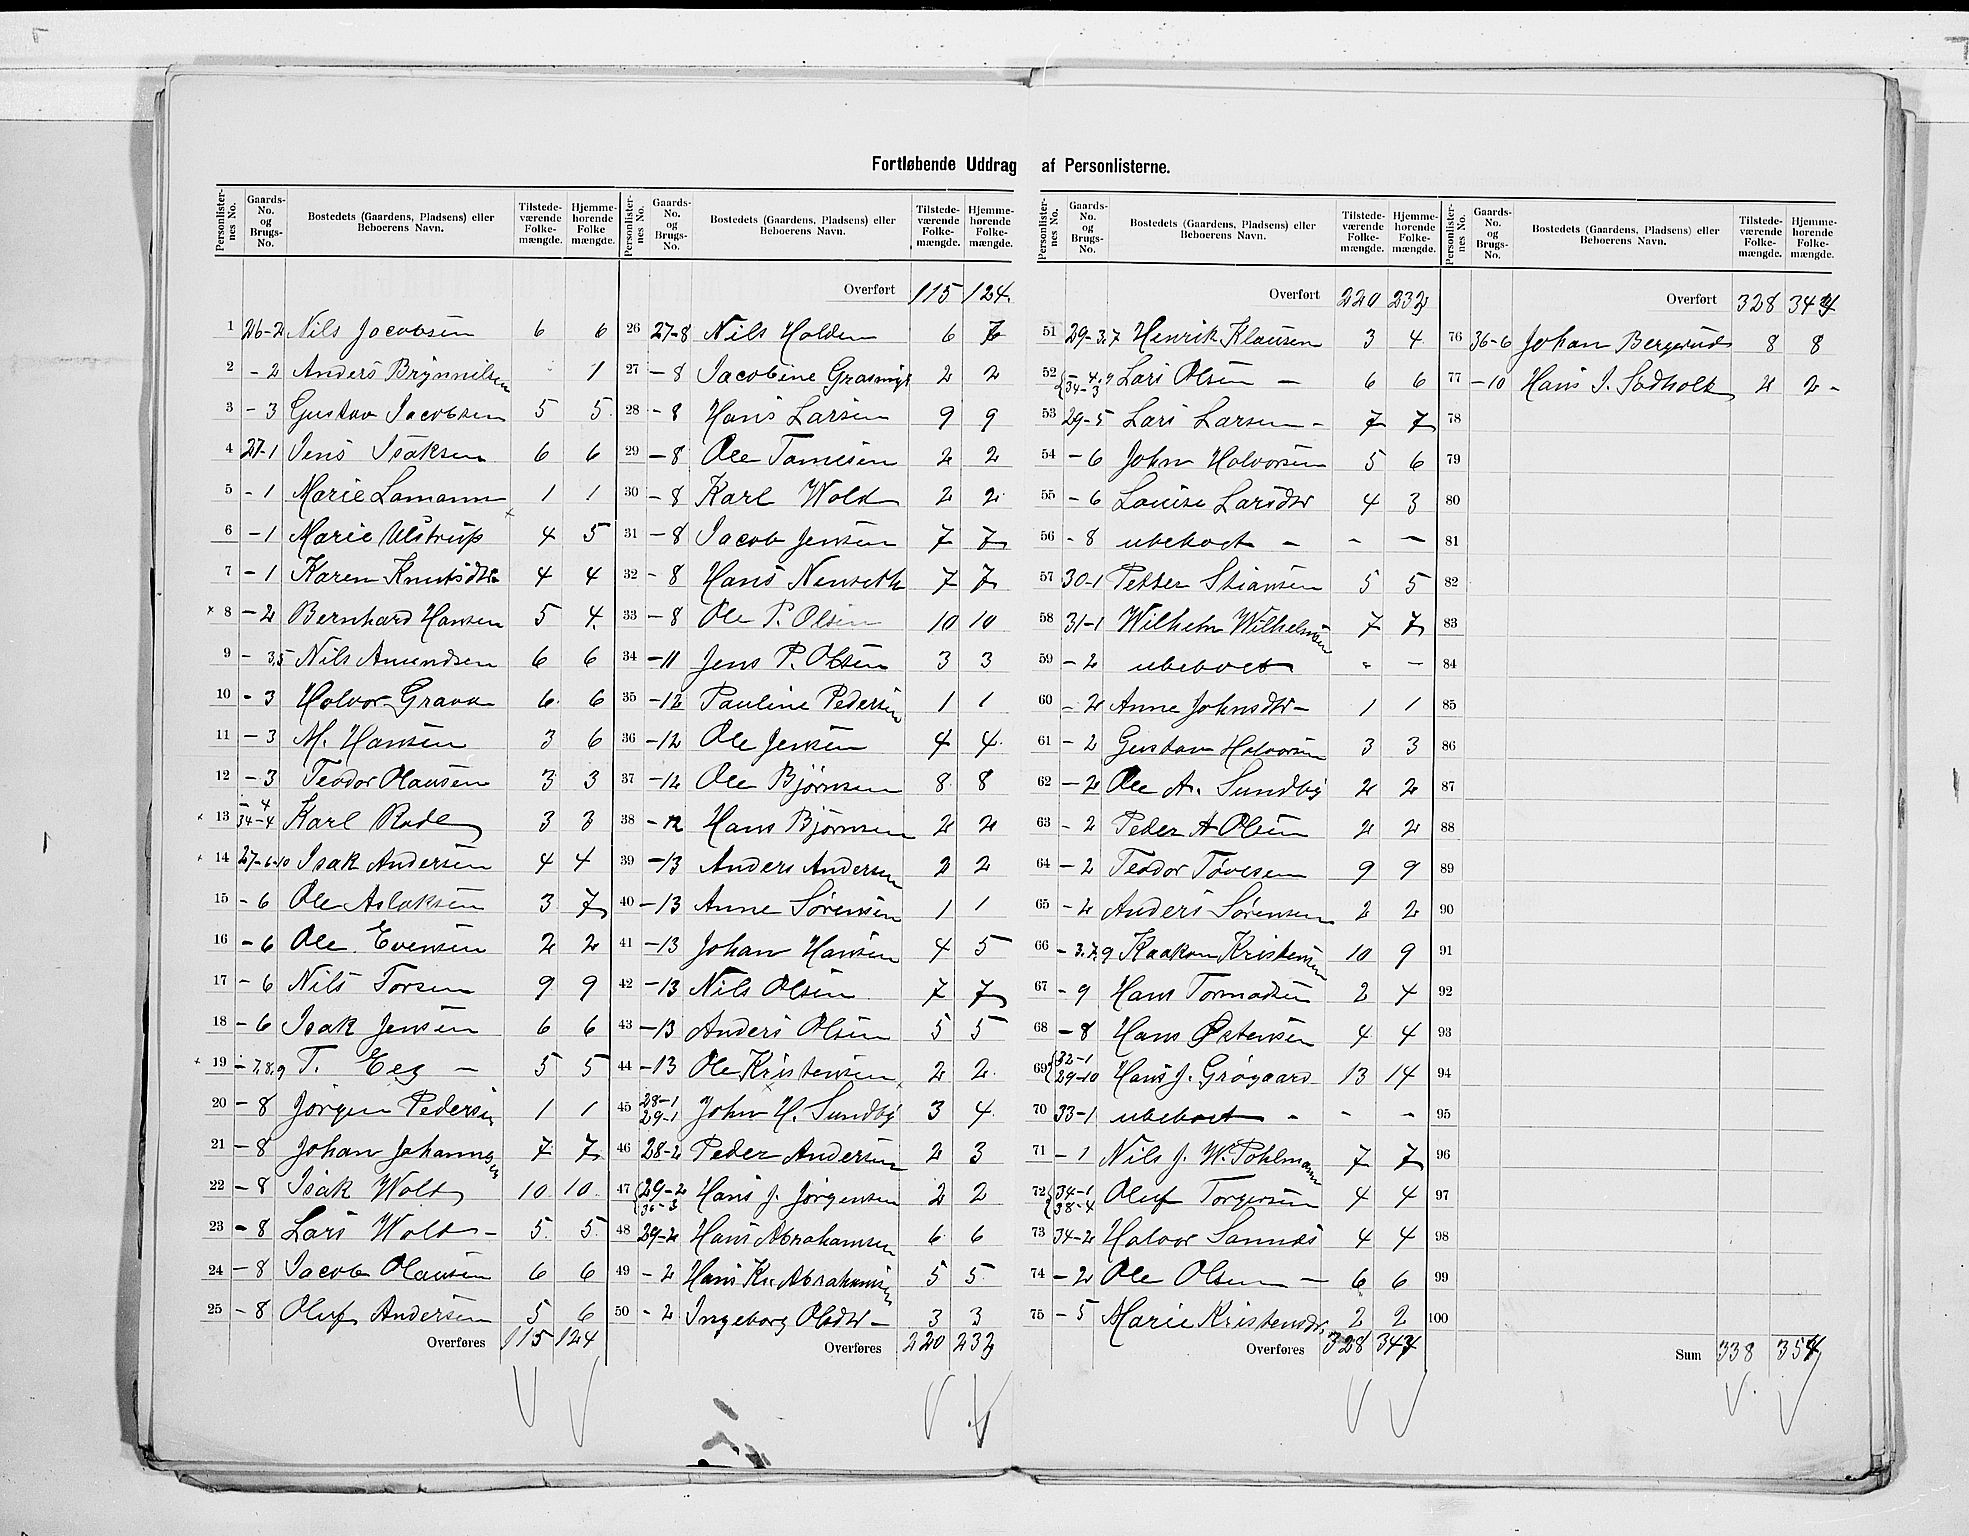 Fortløbende Uddrag af Personlisterne.
Personlister-nes No. Gaards-No. og Brugs-No. Bostedets (Gaardens, Pladsens) eller Beboerens Navn. Tilstede-værende Folke-mængde. Hjemme-hørende Folke mængde.
1 26-2 Nils Jacobsen 6 6
2 -2 Anders Brynnilsen 1
3 -3 Gustav Jacobsen 5 5
4 27-1 Jens Isaksen 6 6
5 -1 Marie Lamann 1 1
6 -1 Marie Ulstrup 4 5
7 -1 Karen Knutsdtr 4 4
× 8 -2 Bernhard Hansen 5 4
9 -3,5 Nils Amundsen 6 6
10 -3 Halvor Grava 6 6
11 -3 M. Hansen 3 6
12 -3 Teodor Olausen 3 3
13 -4 34-4 Karl Rode 3 3
14 27-6-10 Isak Andersen 4 4
15 -6 Ole Aslaksen 3 7
16 -6 Ole Evensen 2 2
17 -6 Nils Torsen 9 9
18 -6 Isak Jensen 6 6
19 -7,8,9 T. Eeg - 5 5
20 -8 Jørgen Pedersen 1 1
21 -8 Johan Johannsen 7 7
22 -8 Isak Wold 10 10
23 -8 Lars Wold - 5 5
24 -8 Jacob Olausen 6 6
25 -8 Oluf Andersen 5 6
Overføres 115 124
Personlister-nes No. Gaards-No. og Brugs-No. Bostedets (Gaardens, Pladsens) eller Beboerens Navn. Tilstede-værende Folke-mængde. Hjemme-hørende Folke-mængde.
Overført 115 124
26 27-8 Nils Holden 6 7
27 -8 Jacobine 2 2
28 -8 Hans Larsen 9 9
29 -8 Ole Tomesen 2 2
30 -8 Karl Wold 2 2
31 -8 Jacob Jensen 7 7
32 -8 Hans 7 7
33 -8 Ole P. Olsen 10 10
34 -11 Jens P. Olsen 3 3
35 -12 Pauline Pedersen 1 1
36 -12 Ole Jensen 4 4
37 -12 Ole Bjørnsen 8 8
38 -12 Hans Bjørnsen 2 2
39 -13 Anders Andersen 2 2
40 -13 Anne Sørensen 1 1
41 -13 Johan Hansen 4 5
42 -13 Nils Olsen 7 7
43 -13 Anders Olsen 5 5
44 -13 Ole Kristensen 2 2
45 28-1 29-1 John H. Sundby 3 4
46 28-2 Peder Andersen 2 3
47 29-2 36-3 Hans J. Jørgensen 2 2
48 29-2 Hans Abrahamsen 6 6
49 -2 Hans Kr. Abrahamsen 5 5
50 -2 Ingeborg Olsdtr - 3 3
Overføres 220 232
Personlister-nes No. Gaards-No. og Brugs-No. Bostedets (Gaardens, Pladsens) eller Beboerens Navn. Tilstede-værende Folke-mængde. Hjemme-hørende Folke-mængde.
Overført 220 232
51 29-3,7 Henrik Klausen 3 4
52 -4,9 34-3 Lars Olsen - 6 6
53 29-5 Lars Larsen - 7 7
54 -6 John Halvorsen 5 6
55 -6 Louise Larsdtr 4 3
56 -8 ubeboet - - -
57 30-1 Petter Stiansen 5 5
58 31-1 Wilhelm Wilhelmsen 7 7
59 -2 ubeboet - -
60 -2 Anne Johnsdtr - 1 1
61 -2 Gustav Halvorsen 3 3
62 -2 Ole A. Sundby 2 2
63 -2 Peder A Olsen 2 2
64 -2 Teodor Tovesen 9 9
65 -2 Anders Sørensen 2 2
66 -3.7,9 Haakon Kristensen 10 9
67 -9 Hans Tormodsen 2 4
68 -8 Hans Østensen 4 4
69 32-1 29-10 Hans J. Grøgaard 13 14
70 33-1 ubeboet - - -
71 -1 Nils J. W. Pohlmann 7 7
72 34-1 38-4 Oluf Torgersen 4 4
73 34-2 Halvor Sannes 4 4
74 -2 Ole Olsen - 6 6
75 -5 Marie Kristensdr. 2 2
Overføres 328 344
Personlister-nes No. Gaards-No. og Brugs-No. Bostedets (Gaardens, Pladsens) eller Beboerens Navn. Tilstede-værende Folke-mængde. Hjemme-hørende Folke-mængde.
Overført 328 344
76 36-6 Johan Bergsrud 8 8
77 -10 Hans J. Sodholt 2 2 -
78
79
80
81
82
83
84
85
86
87
88
89
90
91
92
93
94
95
96
97
98
99
100
Sum 338 354